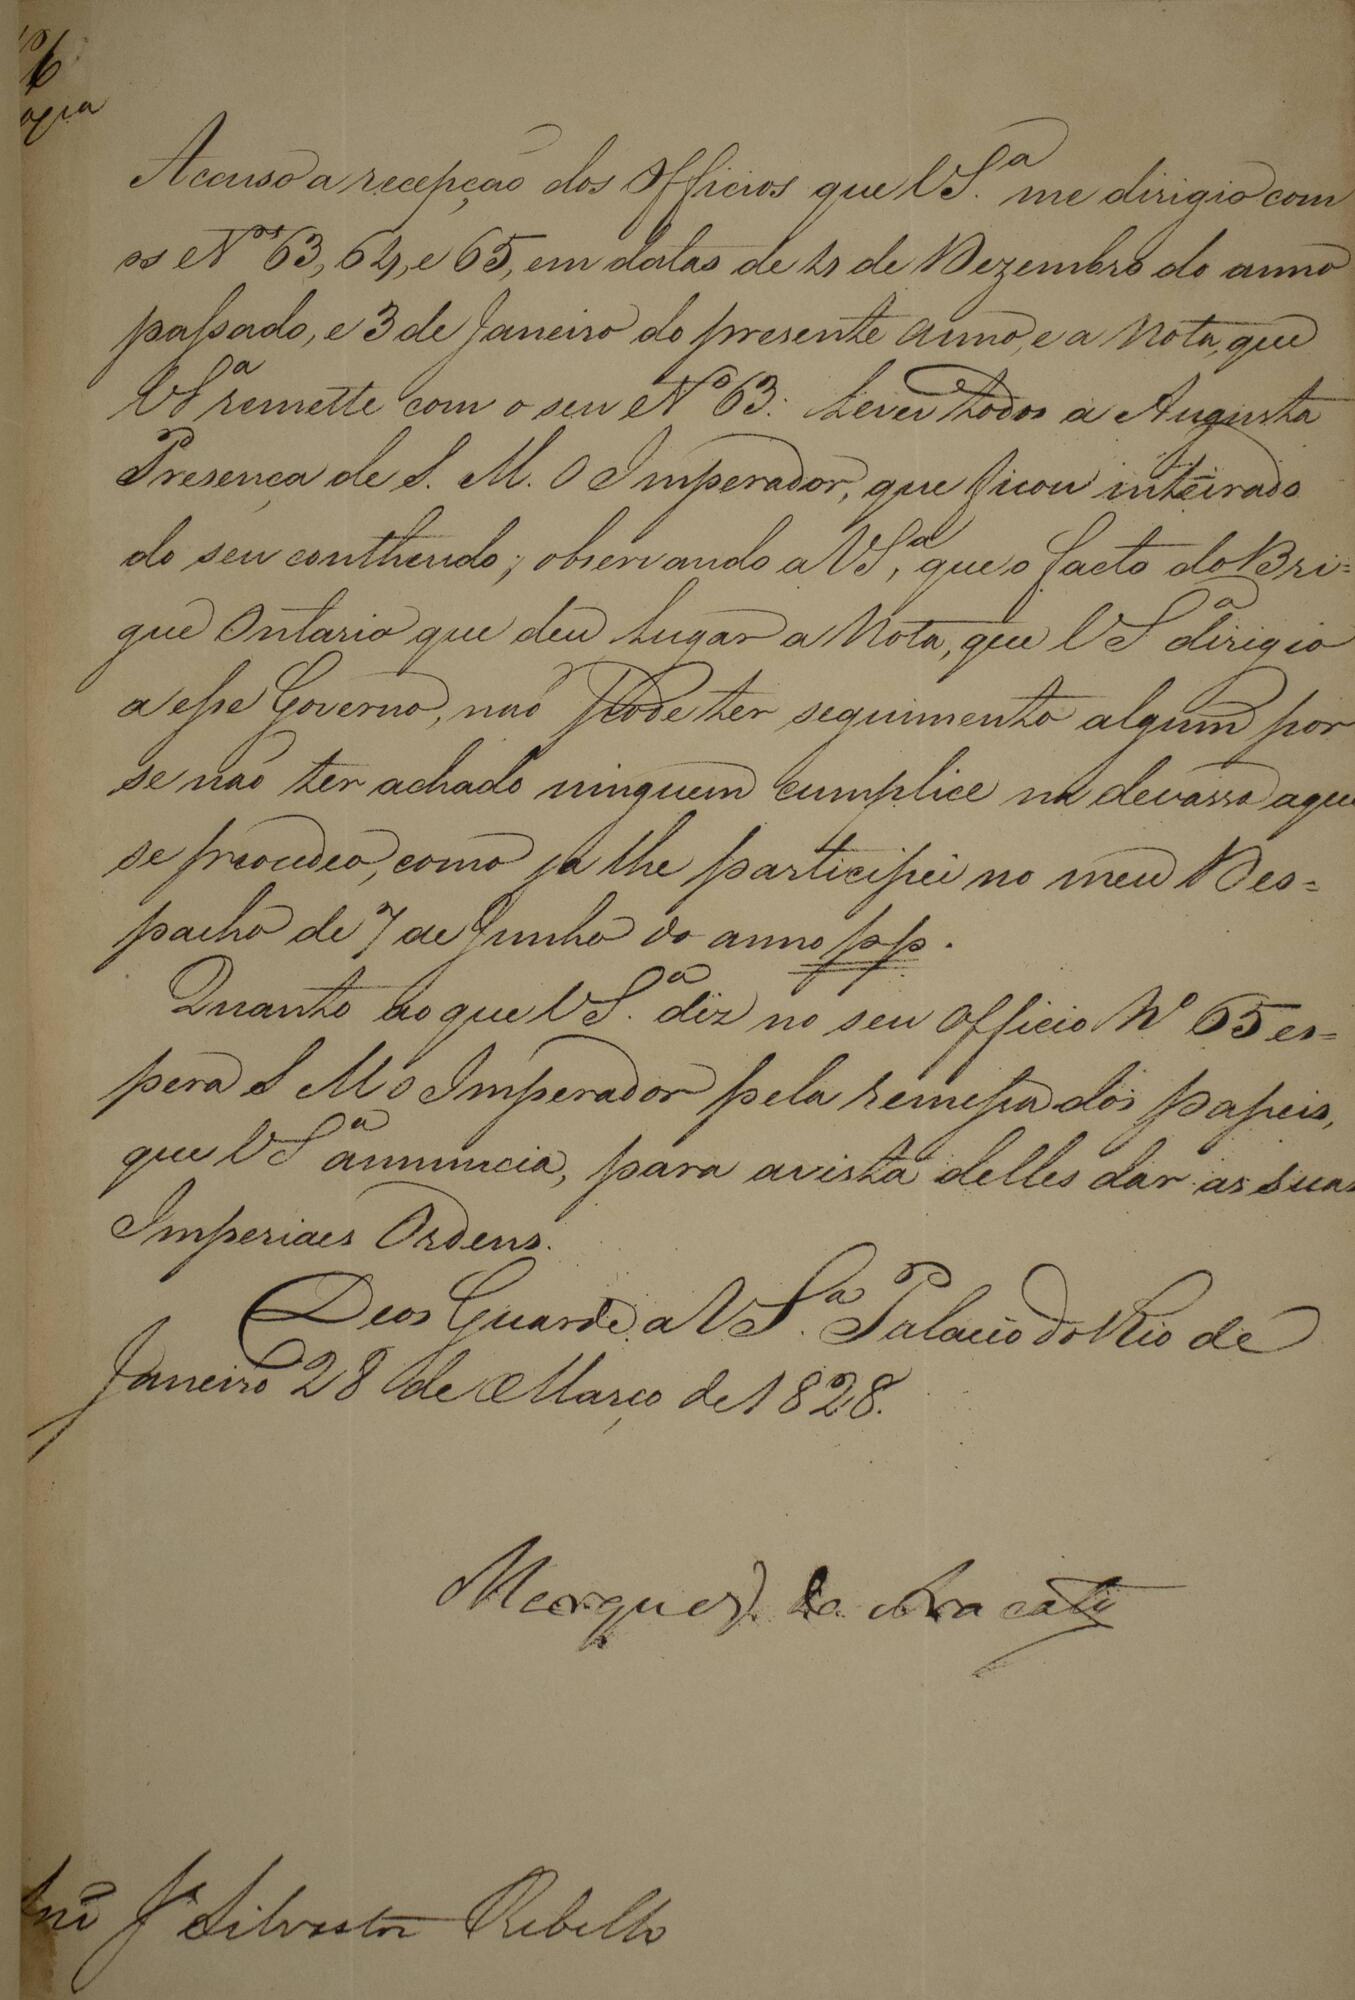 6
Accuso a recepção dos Officios que VS.ª me dirigio com
os Nos 63, 64, e 65, em datas de 21 de Dezembro do anno
passado, e 3 de Janeiro do presente anno, e a Nota, que
VSª remette com o seu Nº 63. Levei todos a Augusta
Presença de S. M. O Imperador, que ficou inteirado
do seu conthendo; observando a VSª, que o facto do Bri=
gue Ontario que deu lugar a Nota, que VSª dirigio
a esse Governo, não Pode ter seguimento algum por
se não ter achado ninguem cumplice na devassa aque
se procedeo, como ja lhe participei no meu Des=
pacho de 7 de Junho do anno pp.
Quanto ao que VS.ª diz no seu Officio Nº 65 es=
pera S M O Imperador pela remessa dos papeis,
que VSª annuncia, para avista delles dar as suas
Imperiaes Ordens.
Deos Guarde a VS.ª Palacio do Rio de
Janeiro 28 de Março de 1828.
Marquez de Aracaty
Jê Silvestre Rebello